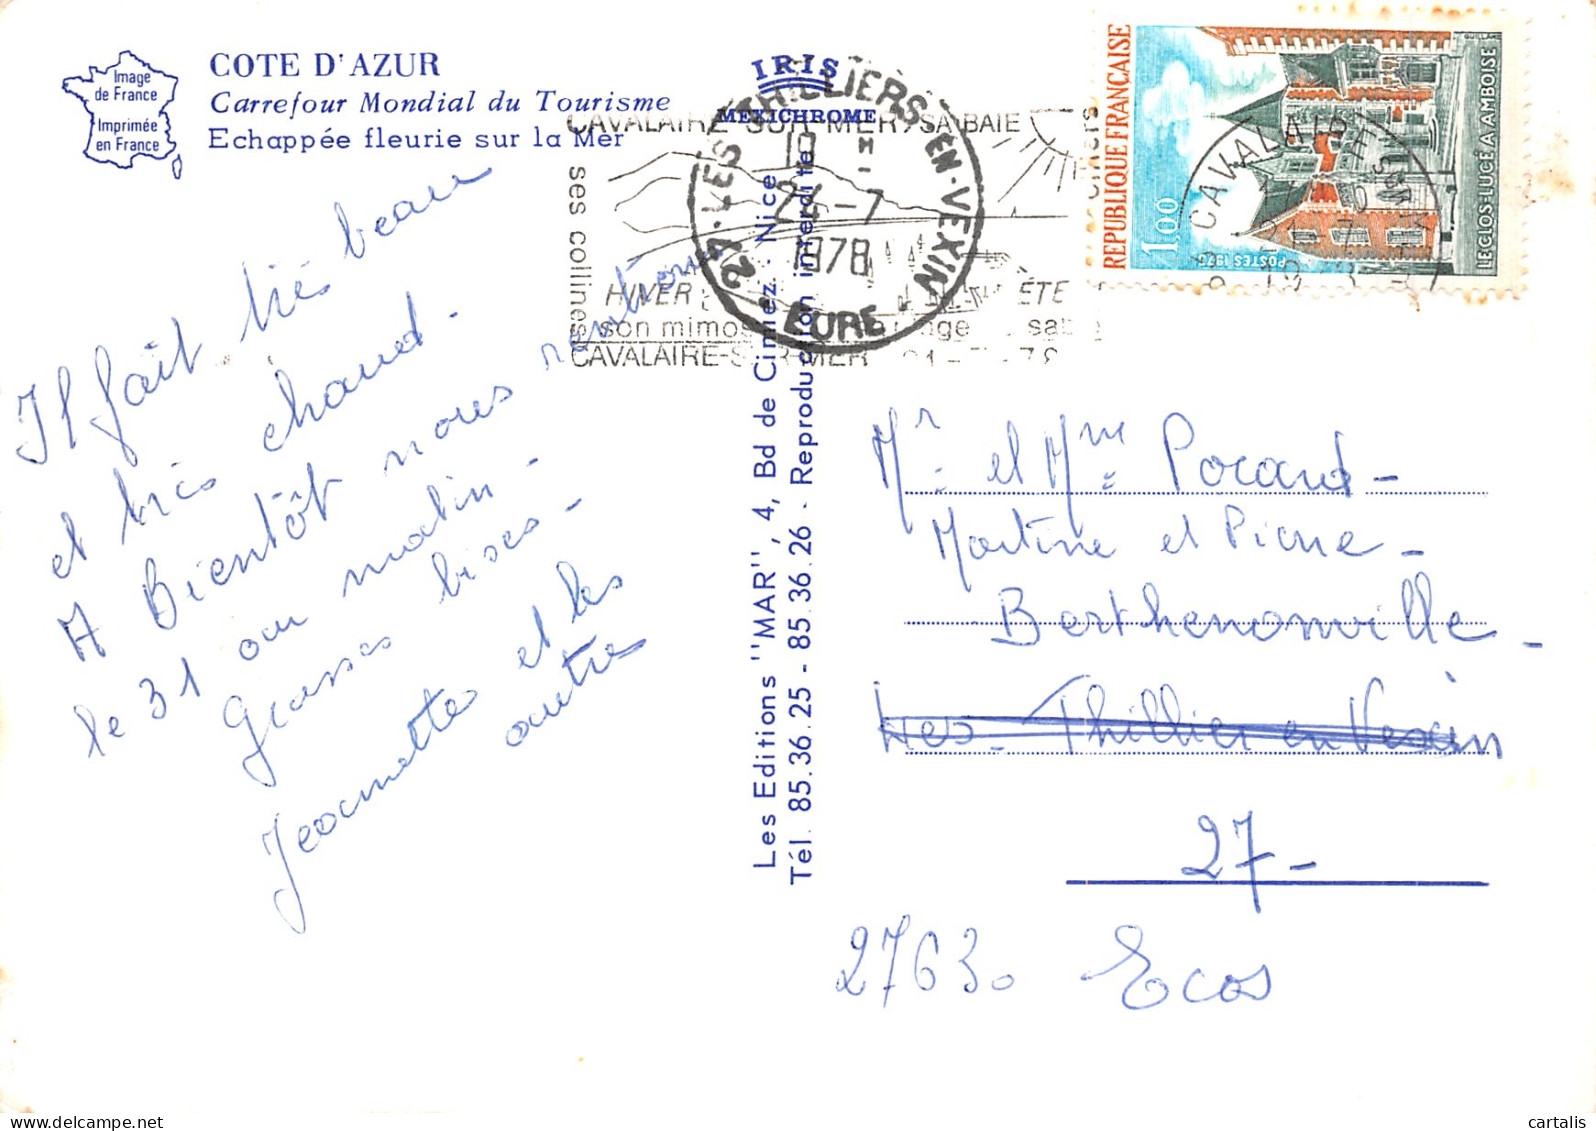 Image
de France
Imprimée
en France
COTE D'AZUR
Carrefour Mondial du Tourisme
Echappée fleurie sur la Mer
IRIS
MEXICHROME
Il fait très beau
et très chaud.
A Bientôt nous rentrons
le 31 au matin.
Grosses bises -
Jeannette et les
autre
Les Editions "MAR", 4, Bd de Cimiez - Nice
Tél. 85.36.25 - 85.36.26 - Reproduction interdite
CAVALAIRE-SUR-MER, SA BAIE
ses collines
HIVER
ÉTÉ
son mimosa
CAVALAIRE-SUR-MER
27 - LES THILLIERS-EN-VEXIN
24-7
1978
EURE
REPUBLIQUE FRANÇAISE
1,00
POSTES 1973
LE CLOS-LUCÉ A AMBOISE
CAVALAIRE-SUR-MER
Mr et Mme Porand -
Martine et Pierre -
Berthenonville -
Les Thilliers en Vexin
27 -
27630 Ecos
cartalis
www.delcampe.net